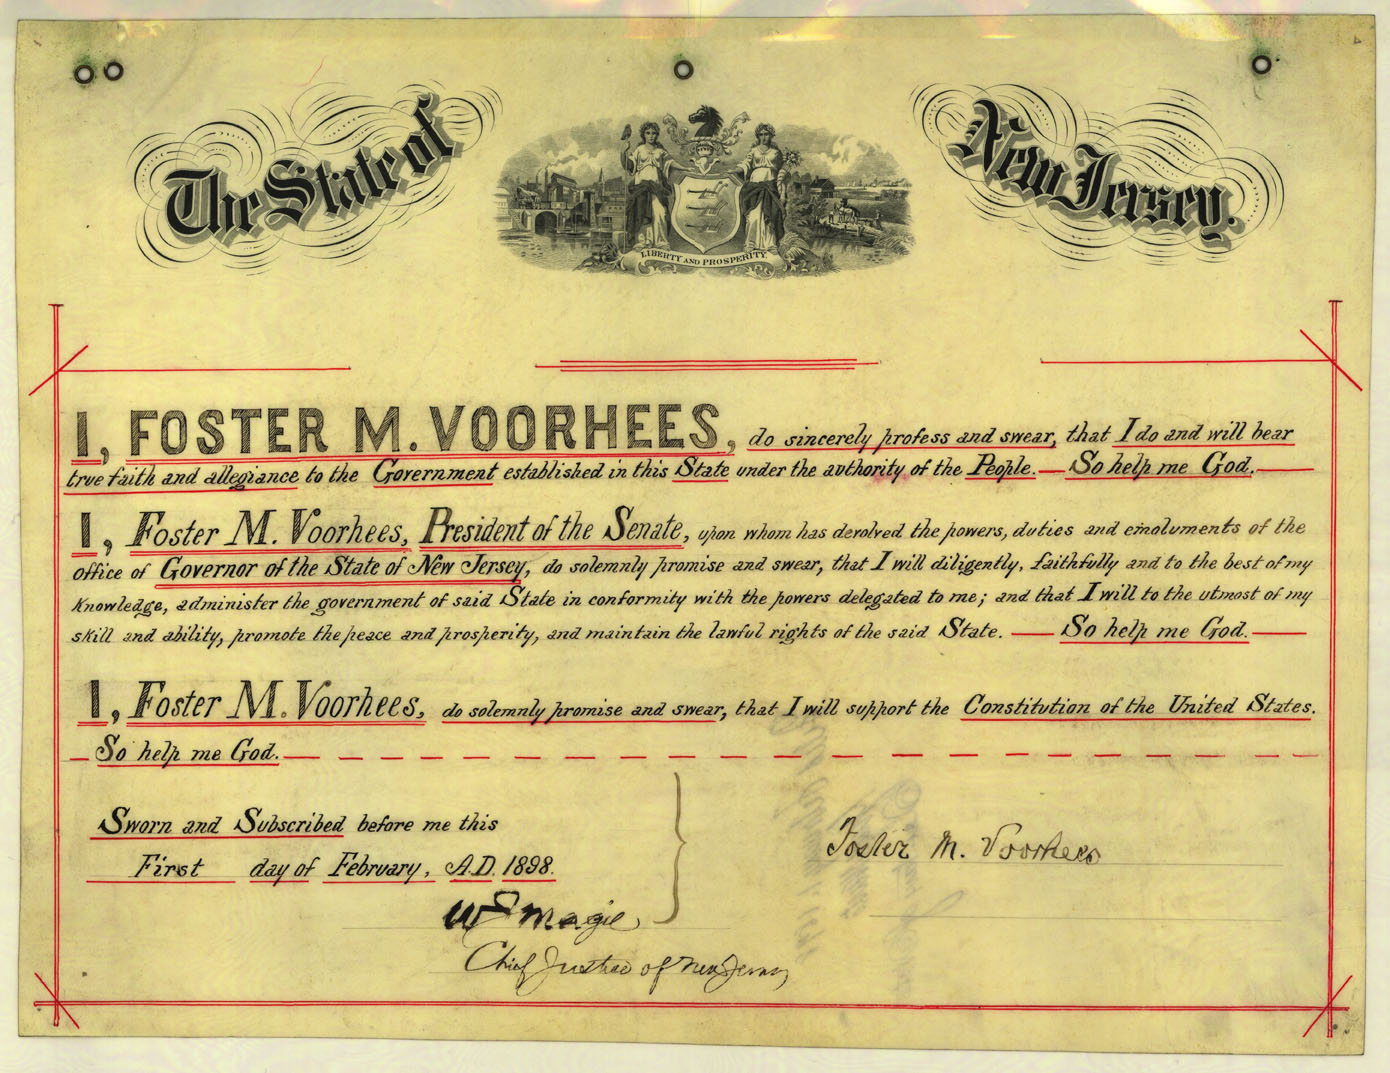 The State of New Jersey.
LIBERTY AND PROSPERITY
I, FOSTER M. VOORHEES, do sincerely profess and swear, that I do and will bear
true faith and allegiance to the Government established in this State under the authority of the People. — So help me God. —
I, Foster M. Voorhees, President of the Senate, upon whom has devolved the powers, duties and emoluments of the
office of Governor of the State of New Jersey, do solemnly promise and swear, that I will diligently, faithfully and to the best of my
knowledge, administer the government of said State in conformity with the powers delegated to me; and that I will to the utmost of my
skill and ability, promote the peace and prosperity, and maintain the lawful rights of the said State. — So help me God. —
I, Foster M. Voorhees, do solemnly promise and swear, that I will support the Constitution of the United States.
So help me God.
Sworn and Subscribed before me this
First day of February, A.D. 1898.
Foster M. Voorhees
W S Magie
Chief Justice of New Jersey